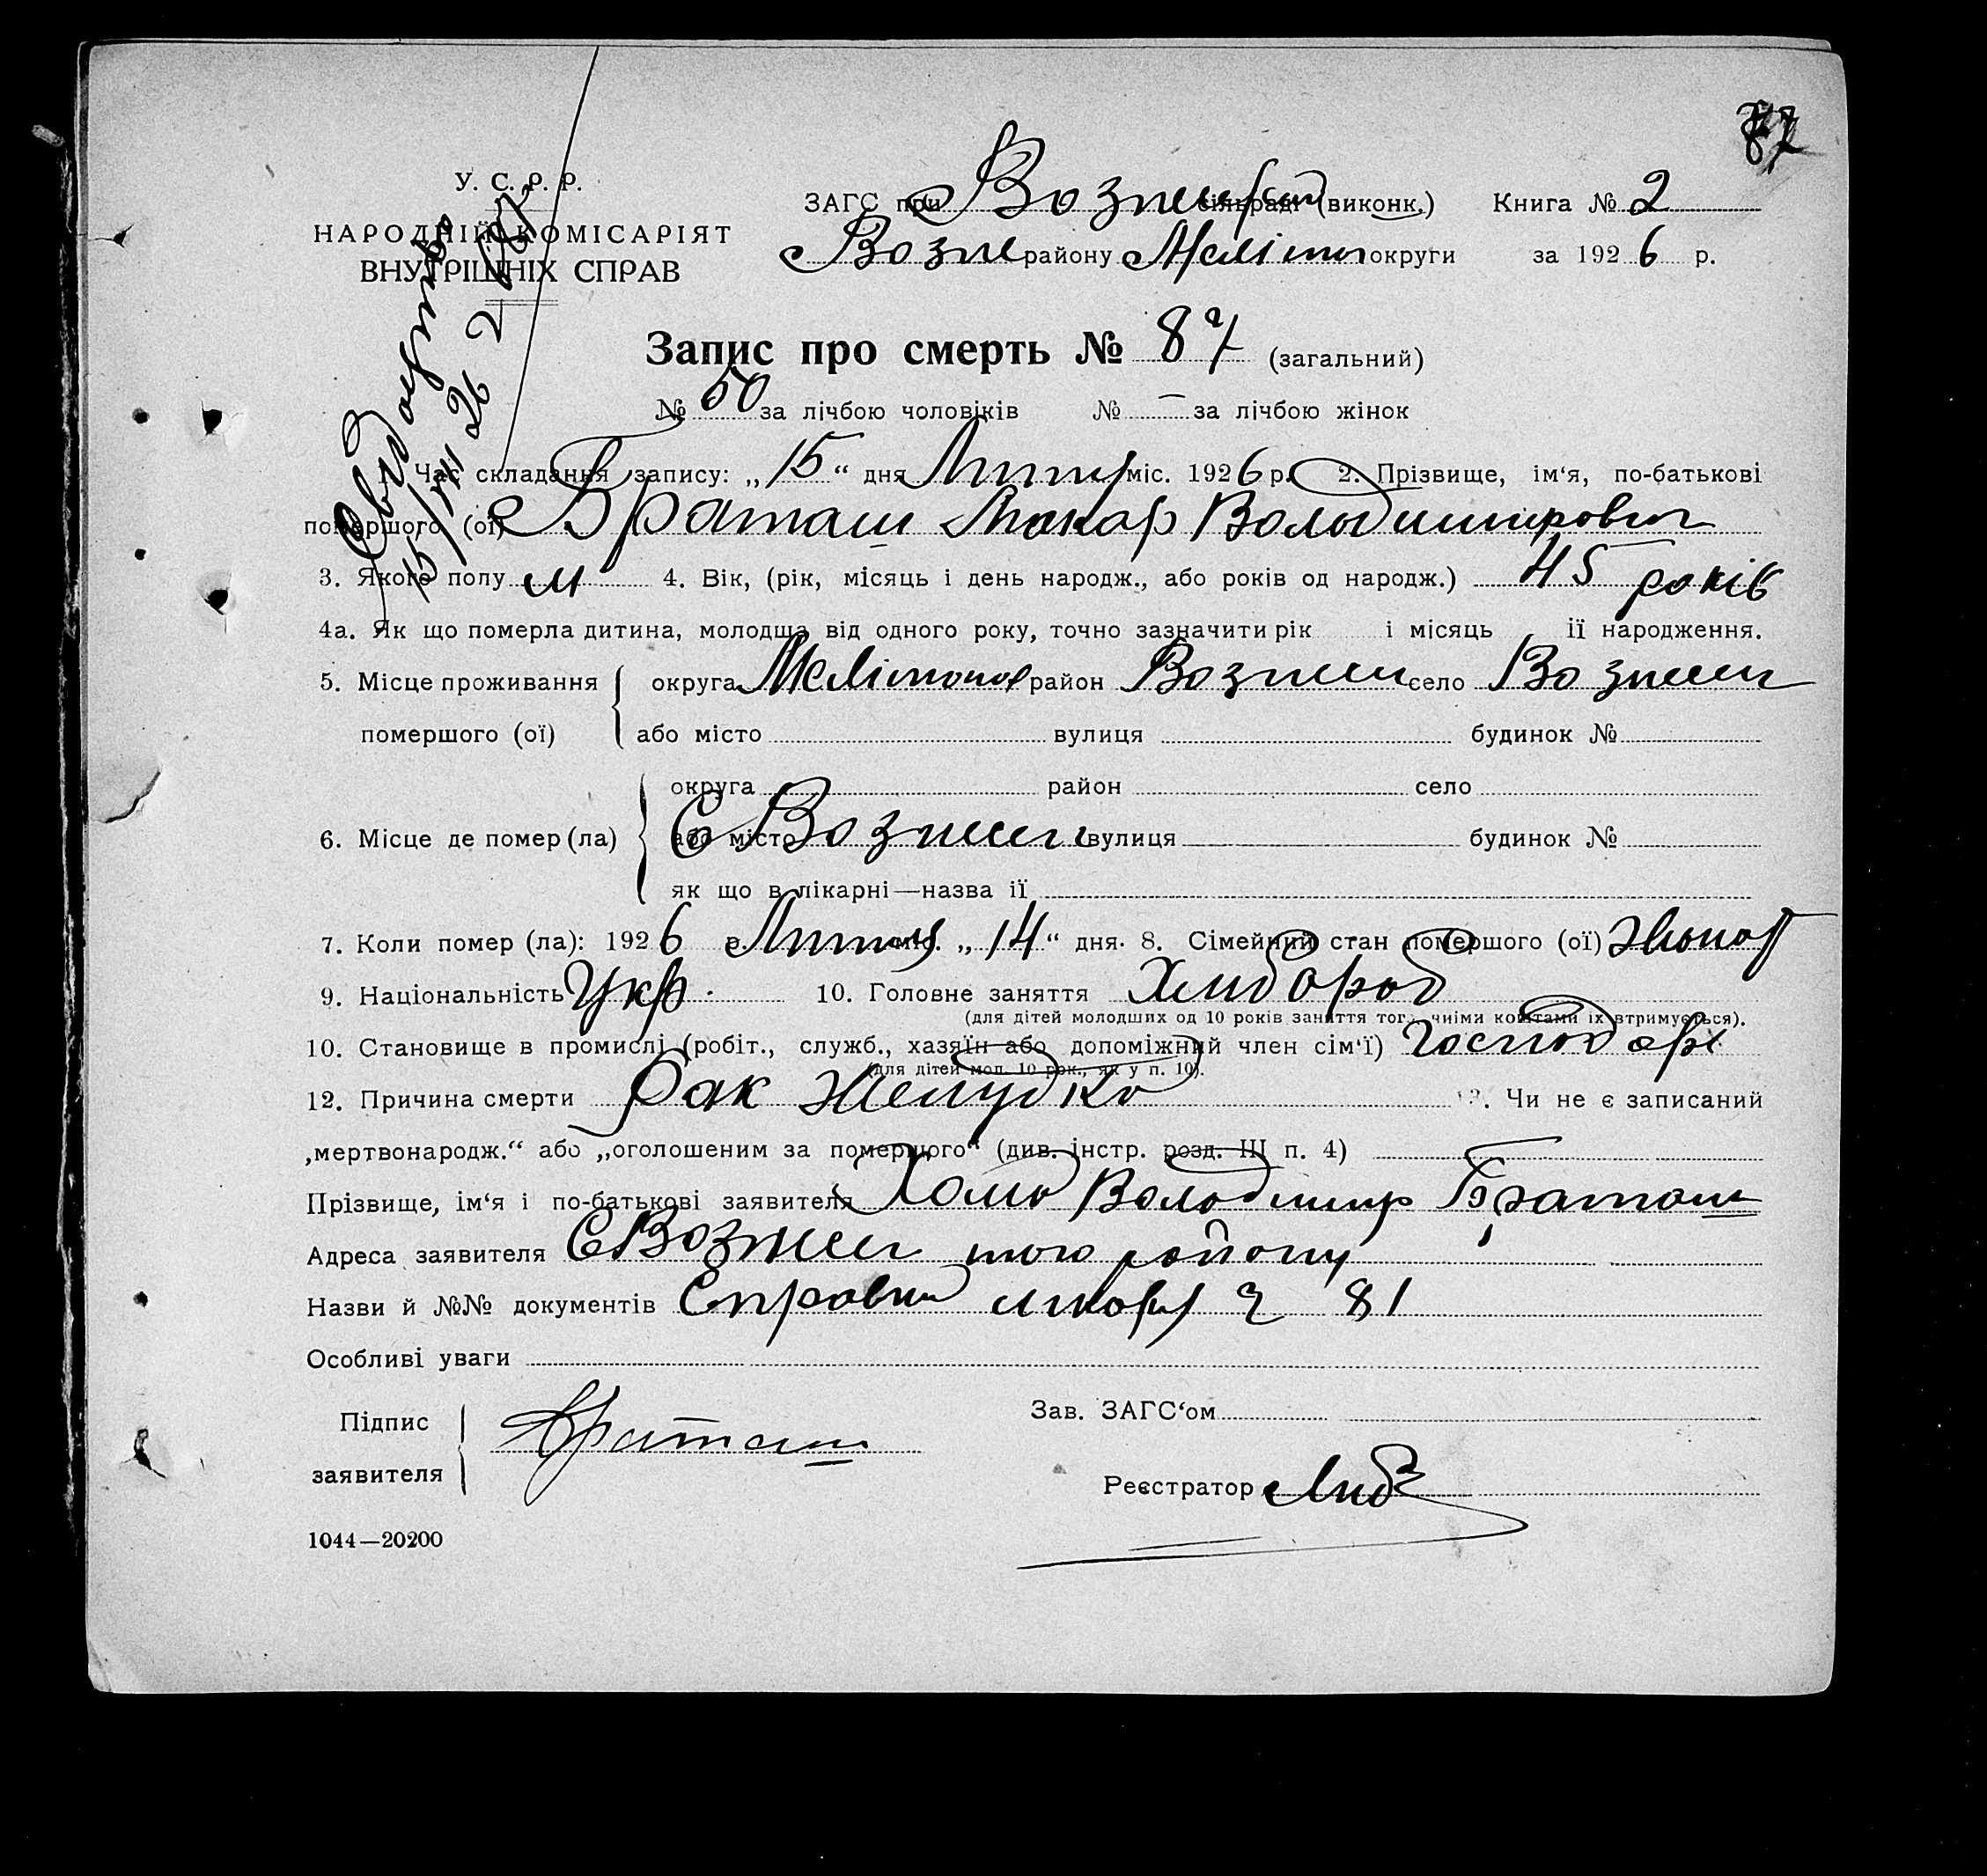 87
У. С. Р. Р.
НАРОДНІЙ КОМІСАРІЯТ
ВНУТРІШНІХ СПРАВ
ЗАГС при сільраді (виконк.) Книга № 2
Возне району Мелітоп округи за 1926 р.
Свидоцтво
15/VII 26 2 87
Запис про смерть № 87 (загальний)
№ 50 за лічбою чоловіків № – за лічбою жінок
1. Час складання запису: „15“ дня Липня міс. 1926 р. 2. Прізвище, ім‘я, по-батькові
помершого (ої) Браташ Макар Володимирович
3. Якого полу м 4. Вік, (рік, місяць і день народж., або років од народж.) 45 років
4а. Як що померла дитина, молодша від одного року, точно зазначити рік і місяць її народження.
5. Місце проживання округа Мелітопол район Вознесен село Вознесен
помершого (ої) або місто вулиця будинок №
округа район село
6. Місце де помер (ла) або місто С Вознесен вулиця будинок №
як що в лікарні—назва її
7. Коли помер (ла): 1926 р. Липня міс. „14“ дня. 8. Сімейний стан помершого (ої) жонат
9. Національність Укр. 10. Головне заняття Хлибороб
(для дітей молодших од 10 років заняття тог., чиїми коштами їх втримується).
10. Становище в промислі (робіт., служб., хазяїн або допоміжний член сім‘ї) Господарь
(для дітей мол. 10 рок., як у п. 10).
12. Причина смерти Рак желудка 13. Чи не є записаний
„мертвонародж.“ або „оголошеним за помершого“ (див. інстр. розд. III п. 4)
Прізвище, ім‘я і по-батькові заявителя Хома Володимир Браташ
Адреса заявителя С Вознесен того району
Назви й №№ документів Справка лікаря 81
Особливі уваги
Підпис
заявителя Браташ
Зав. ЗАГС‘ом
Реєстратор
1044—20200